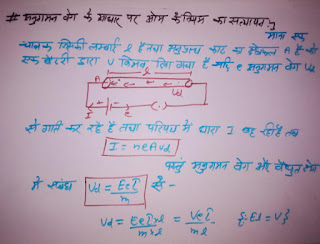 # अनुगमन वेग के आधार पर ओम के नियम का सत्यापन :-
माना एक
चालक जिसकी लम्बाई l है तथा अनुप्रस्थ काट का क्षेत्रफल A है को
एक बैटरी द्वारा V विभव दिया गया है यदि e अनुगमन वेग Vd
l
A
Vd
I
E
से गति कर रहे है तथा परिपथ में धारा I बह रही है तब
I = neAVd
परंतु अनुगमन वेग और वैद्युत क्षेत्र
में संबंध Vd = Eeτ/m से -
Vd = Eeτ×l/m×l = Veτ/ml {El = V}